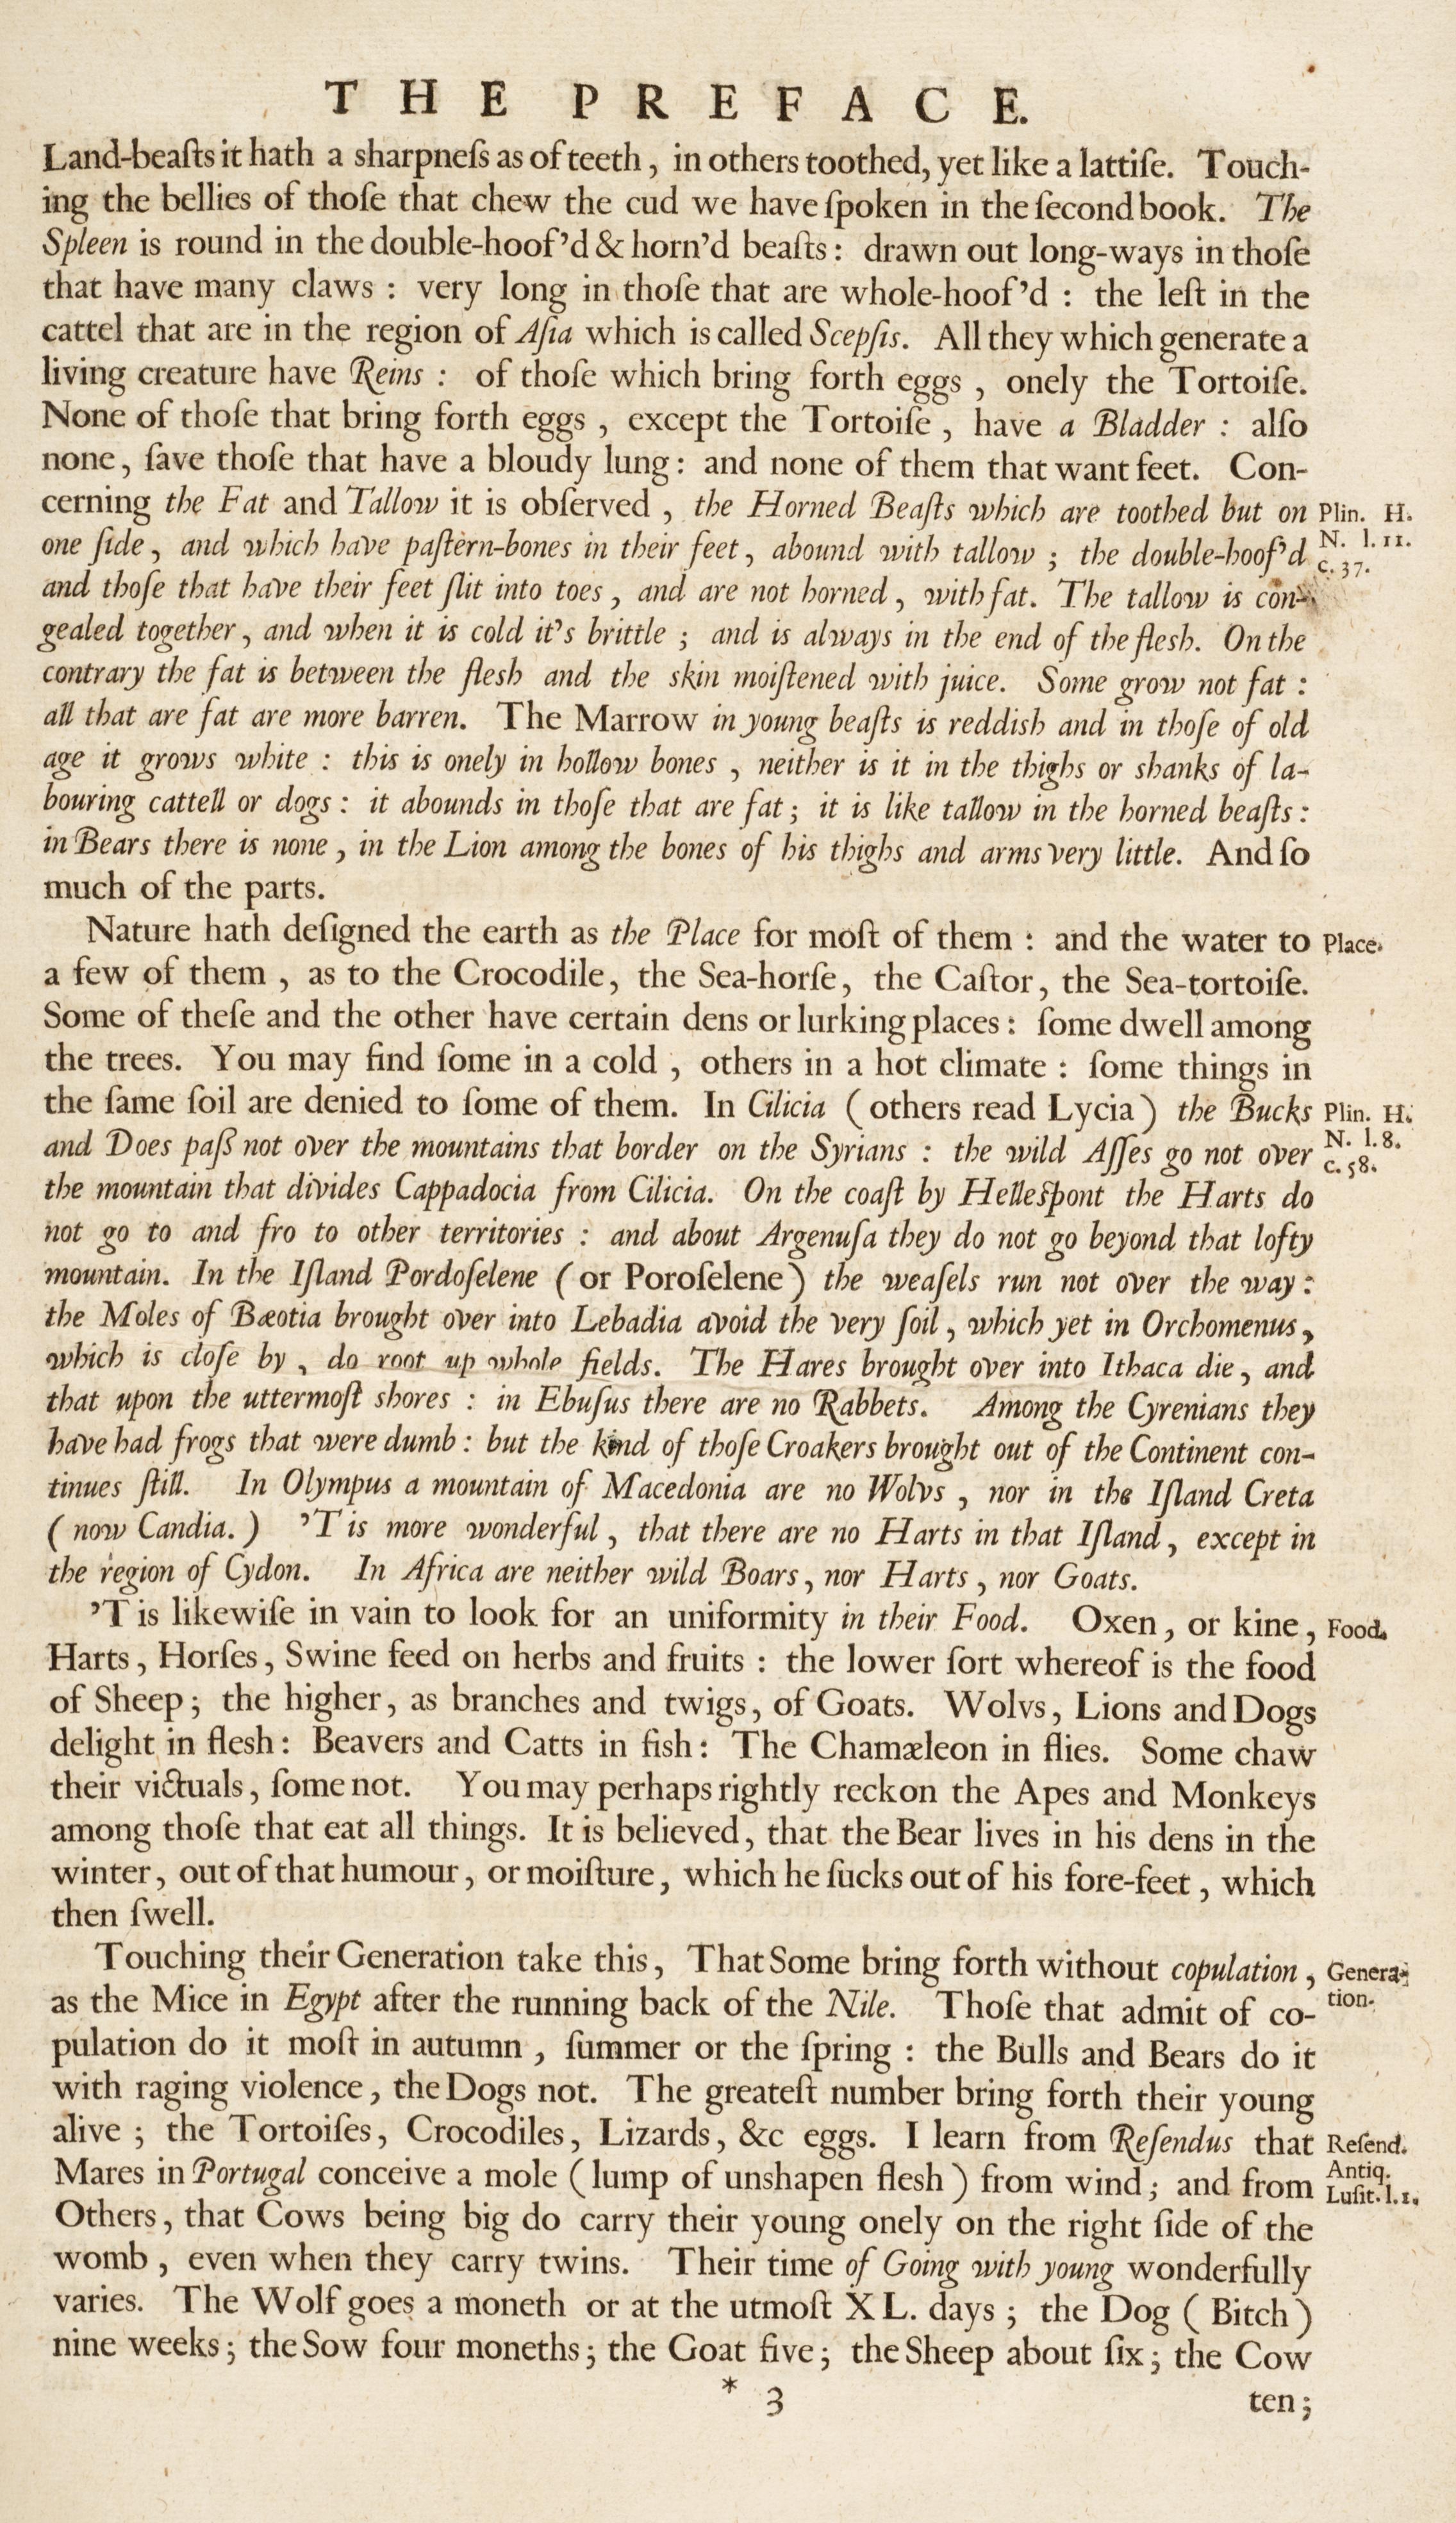 THE PREFACE.
Land-beaſts it hath a sharpneſs as of teeth, in others toothed, yet like a lattiſe. Touch-
ing the bellies of thoſe that chew the cud we have ſpoken in the ſecond book. The
Spleen is round in the double-hoof'd & horn'd beaſts: drawn out long-ways in thoſe
that have many claws : very long in thoſe that are whole-hoof'd : the leſt in the
cattel that are in the region of Aſia which is called Scepſis. All they which generate a
living creature have Reins : of thoſe which bring forth eggs , onely the Tortoiſe.
None of thoſe that bring forth eggs , except the Tortoiſe , have a Bladder : alſo
none, ſave thoſe that have a bloudy lung: and none of them that want feet. Con-
cerning the Fat and Tallow it is obſerved , the Horned Beaſts which are toothed but on
Plin. H.
one ſide, and which have paſtern-bones in their feet, abound with tallow ; the double-hoof'd
N. l. 11.
c. 37.
and thoſe that have their feet ſlit into toes, and are not horned, with fat. The tallow is con-
gealed together, and when it is cold it's brittle ; and is always in the end of the flesh. On the
contrary the fat is between the flesh and the skin moiſtened with juice. Some grow not fat :
all that are fat are more barren. The Marrow in young beaſts is reddish and in thoſe of old
age it grows white : this is onely in hollow bones , neither is it in the thighs or shanks of la-
bouring cattell or dogs: it abounds in thoſe that are fat; it is like tallow in the horned beaſts:
in Bears there is none, in the Lion among the bones of his thighs and arms very little. And ſo
much of the parts.
Nature hath deſigned the earth as the Place for moſt of them : and the water to
Place.
a few of them , as to the Crocodile, the Sea-horſe, the Caſtor, the Sea-tortoiſe.
Some of theſe and the other have certain dens or lurking places: ſome dwell among
the trees. You may find ſome in a cold , others in a hot climate : ſome things in
the ſame ſoil are denied to ſome of them. In Cilicia ( others read Lycia) the Bucks
Plin. H.
and Does paß not over the mountains that border on the Syrians : the wild Aſſes go not over
N. l. 8.
c. 58.
the mountain that divides Cappadocia from Cilicia. On the coaſt by Helleſpont the Harts do
not go to and fro to other territories : and about Argenuſa they do not go beyond that lofty
mountain. In the Iſland Pordoſelene ( or Poroſelene) the weaſels run not over the way:
the Moles of Bæotia brought over into Lebadia avoid the very ſoil, which yet in Orchomenus,
which is cloſe by, do root up whole fields. The Hares brought over into Ithaca die, and
that upon the uttermoſt shores : in Ebuſus there are no Rabbets. Among the Cyrenians they
have had frogs that were dumb: but the kind of thoſe Croakers brought out of the Continent con-
tinues ſtill. In Olympus a mountain of Macedonia are no Wolvs , nor in the Iſland Creta
( now Candia. ) 'T is more wonderful, that there are no Harts in that Iſland, except in
the region of Cydon. In Africa are neither wild Boars, nor Harts , nor Goats.
'T is likewiſe in vain to look for an uniformity in their Food. Oxen, or kine,
Food.
Harts, Horſes, Swine feed on herbs and fruits : the lower ſort whereof is the food
of Sheep; the higher, as branches and twigs, of Goats. Wolvs, Lions and Dogs
delight in flesh: Beavers and Catts in fish: The Chamæleon in flies. Some chaw
their victuals, ſome not. You may perhaps rightly reckon the Apes and Monkeys
among thoſe that eat all things. It is believed, that the Bear lives in his dens in the
winter, out of that humour, or moiſture, which he ſucks out of his fore-feet, which
then ſwell.
Touching their Generation take this, That Some bring forth without copulation,
Genera-
as the Mice in Egypt after the running back of the Nile. Thoſe that admit of co-
tion.
pulation do it moſt in autumn , ſummer or the ſpring : the Bulls and Bears do it
with raging violence, the Dogs not. The greateſt number bring forth their young
alive ; the Tortoiſes, Crocodiles, Lizards, &c eggs. I learn from Reſendus that
Reſend.
Mares in Portugal conceive a mole ( lump of unshapen flesh ) from wind; and from
Antiq.
Luſit. l. 1.
Others, that Cows being big do carry their young onely on the right ſide of the
womb , even when they carry twins. Their time of Going with young wonderfully
varies. The Wolf goes a moneth or at the utmoſt XL. days ; the Dog ( Bitch )
nine weeks; the Sow four moneths; the Goat five; the Sheep about ſix; the Cow
* 3
ten;